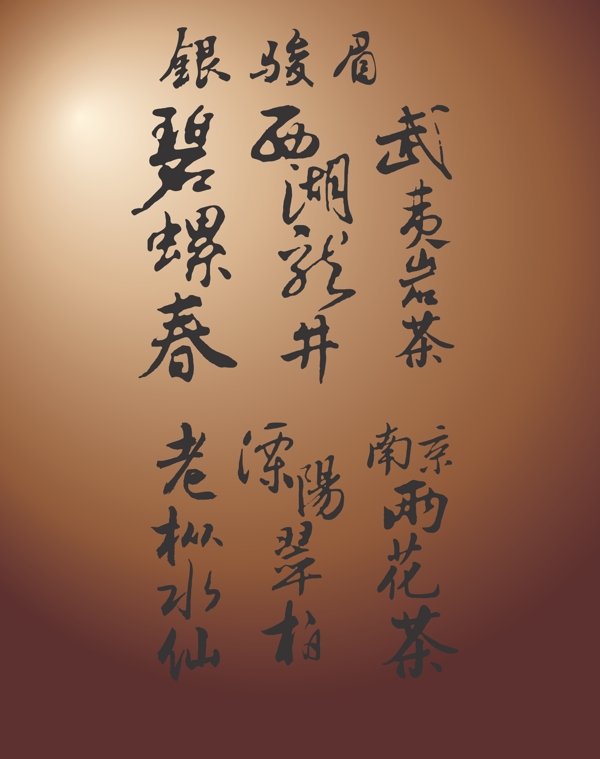 銀骏眉
碧螺春
西湖龙井
武夷岩茶
老枞水仙
溧陽翠柏
南京雨花茶